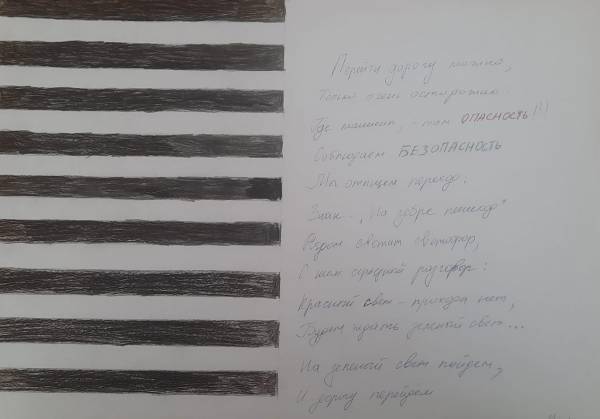 Перейти дорогу можно,
Только очень осторожно.
Где машины, - там ОПАСНОСТЬ!!!
Соблюдаем БЕЗОПАСНОСТЬ
Мы отыщем переход:
Знак - "На зебре пешеход"
Рядом светит светофор,
С ним серьёзный разговор:
Красный свет - прохода нет,
Будем ждать зеленый свет...
На зеленый свет пойдем,
И дорогу перейдем